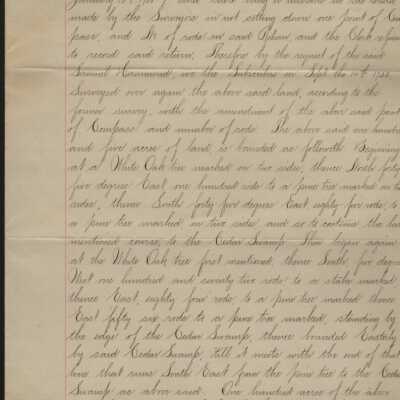 made by the Surveyors in not setting down one point of Com
pass, and No of rods in said Return, and the Clerk refuses
to record said return, Therefore by the request of the said
Samuel Hammond, we the Subscribers on Sept the 10th
Surveyed over again the above said land, according to the
former survey, with the amendment of the above said point
of Compass and number of rods. The above said one hundred
and five acres of land is bounded as followeth Beginning
at a White Oak tree marked on two sides, thence North forty
five degrees East one hundred rods to a pine tree marked on two
sides, thence South forty five degrees East eighty five rods, to
a pine tree marked on two sides and so to continue the last
mentioned course, to the Cedar Swamp, Then began again
at the White Oak tree first mentioned, thence South five degrees
West one hundred and seventy two rods to a stake marked
thence East, eighty four rods, to a pine tree marked thence
East fifty six rods to a pine tree marked, standing by
the edge of the Cedar Swamp, thence bounded Easterly
by said Cedar Swamp, till it meets with the end of that
line that runs South East from the pine tree to the Cedar
Swamp as above said. One hundred acres of the above